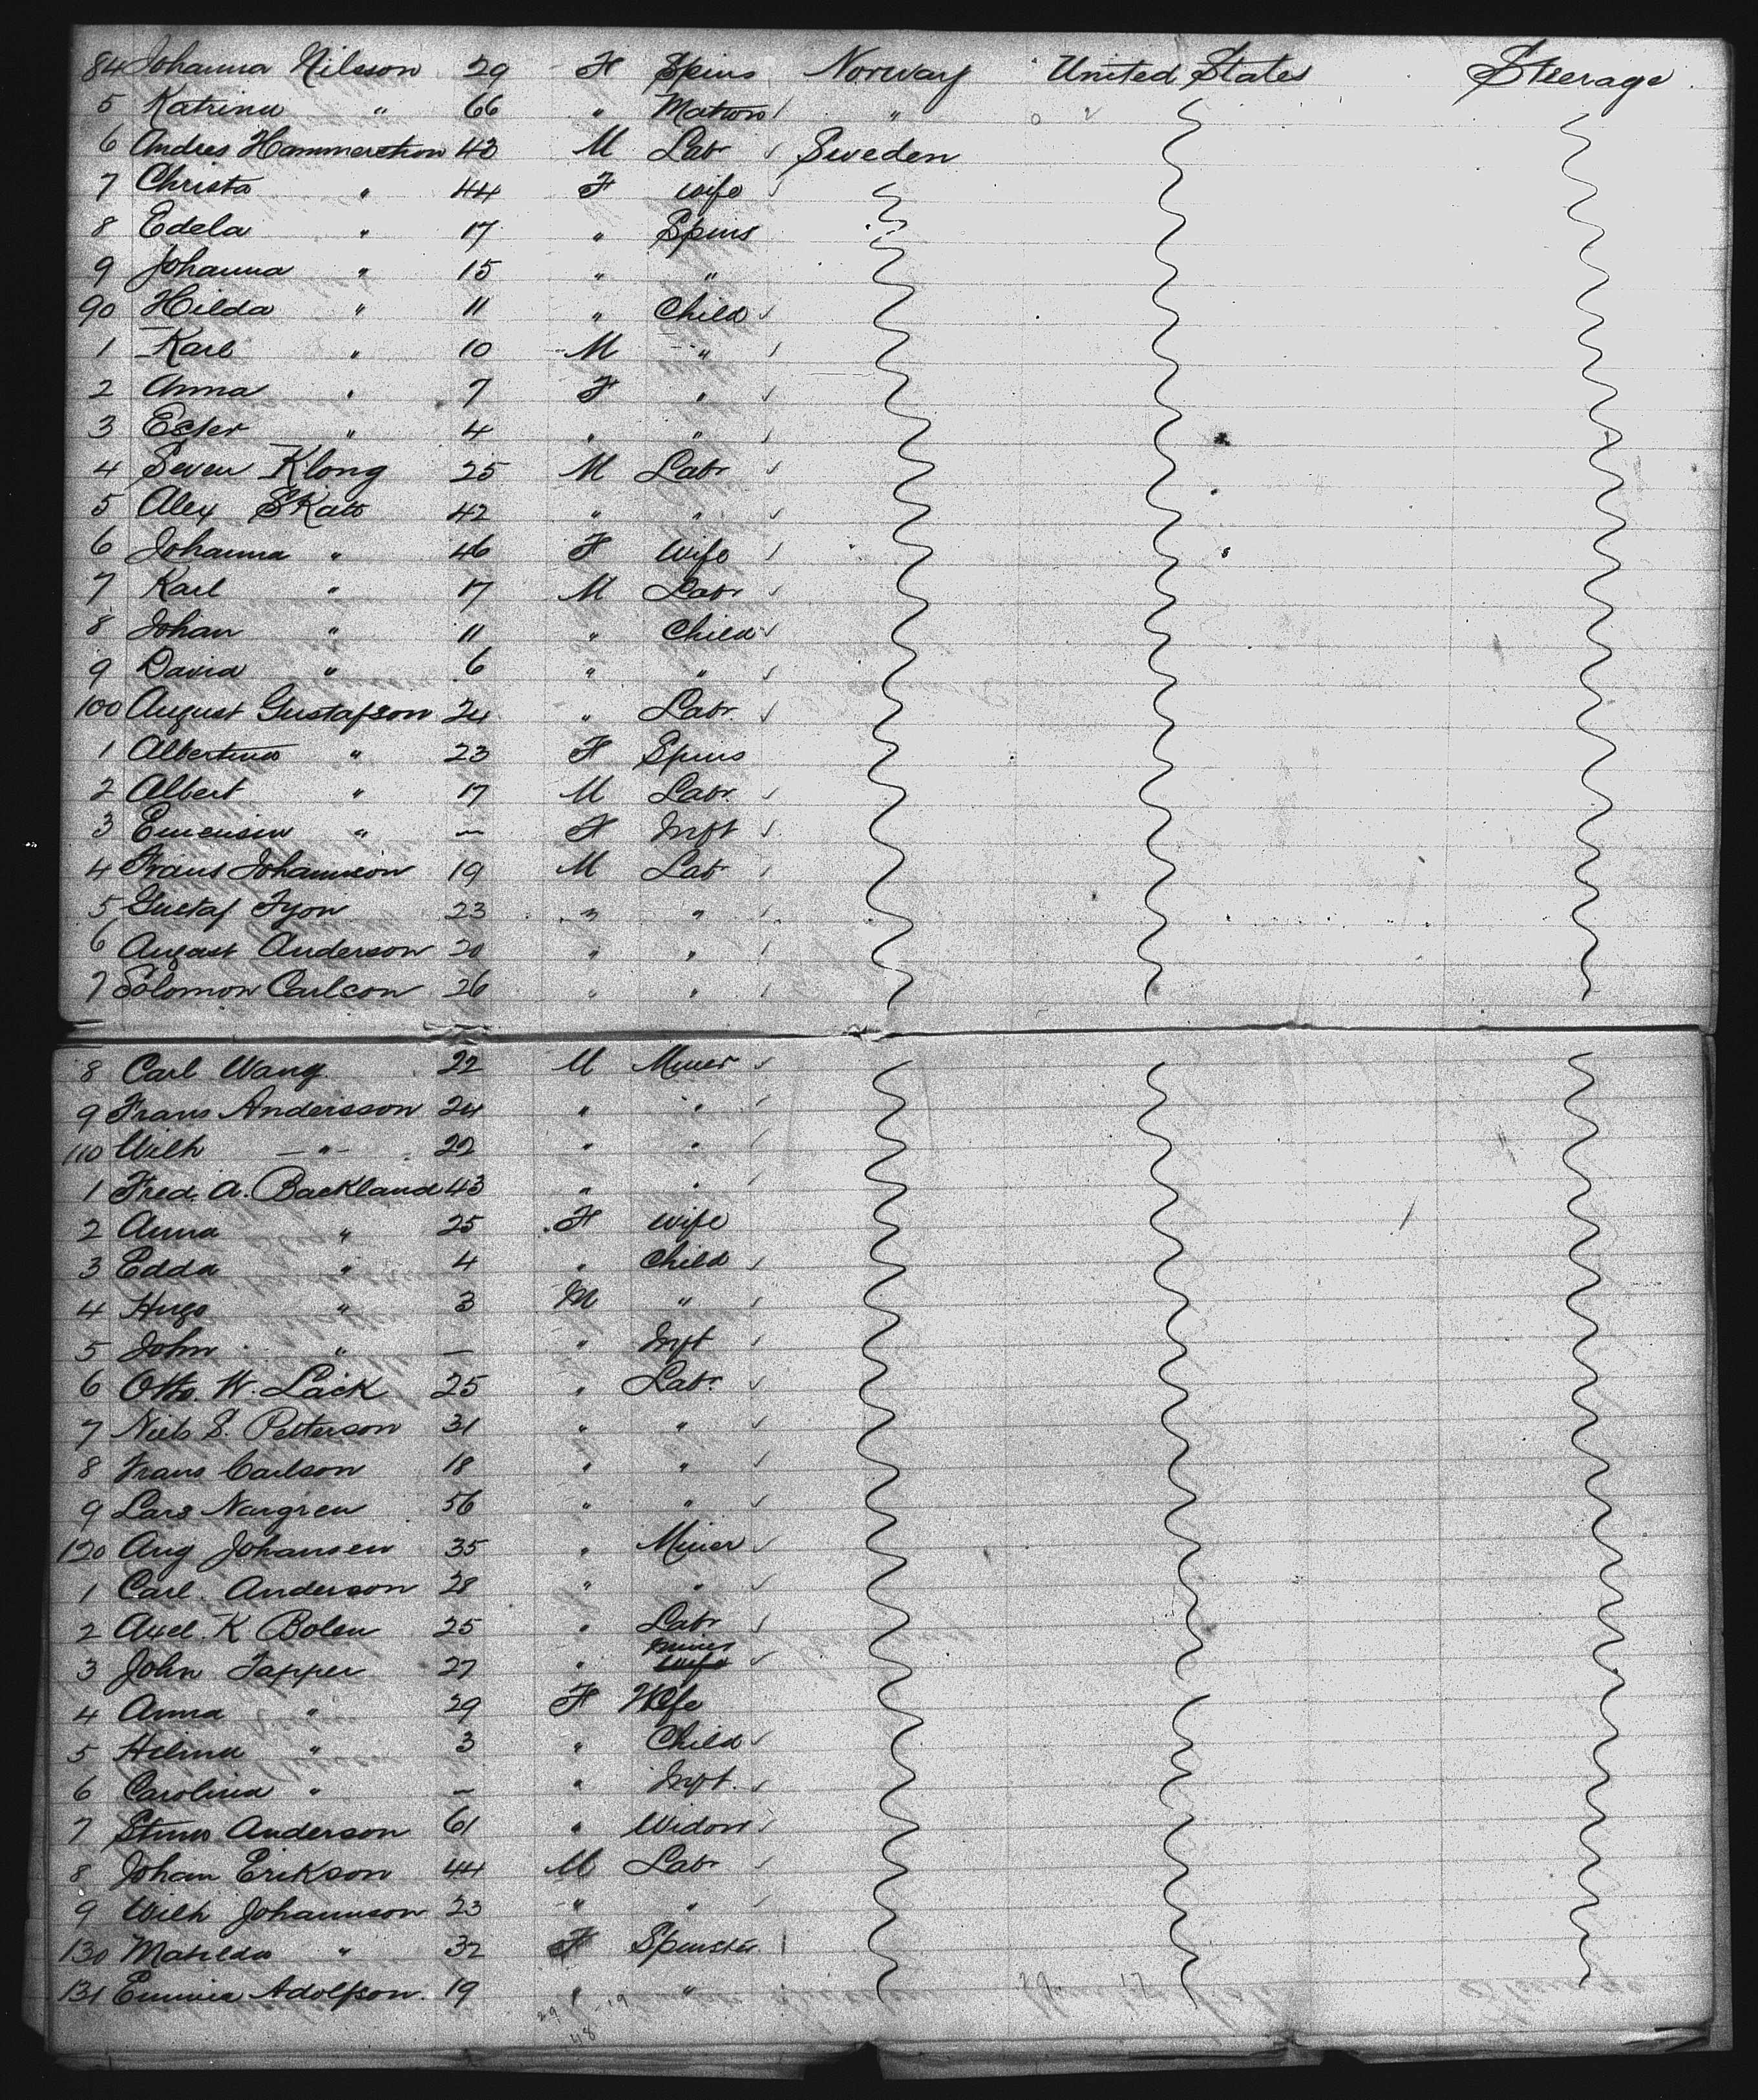 84 Johanna Nilsson 29 F Spins Norway United States Steerage
5 Katrina " 66 " Matron "
6 Andres Hammerstrom 43 M Labr Sweden
7 Christa " 44 F Wife
8 Edela " 17 " Spins
9 Johanna " 15 " "
90 Hilda " 11 " Child
1 Karl " 10 M "
2 Anna " 7 F "
3 Ester " 4 " "
4 Seven Klong 25 M Labr
5 Alex Skato 42 " "
6 Johanna " 46 F Wife
7 Karl " 17 M Labr
8 Johan " 11 " Child
9 David " 6 " "
100 August Gustafson 24 " Labr
1 Albertina " 23 F Spins
2 Albert " 17 M Labr
3 " — F Inft
4 Frans Johannson 19 M Labr
5 Gustaf Fyon 23 " "
6 August Anderson 20 " "
7 Solomon Carlson 26 " "
8 Carl Wang 22 M Miner
9 Frans Andersson 24 " "
110 Wilh — " — 22 " "
1 Fred. A. Backland 43 " "
2 Anna " 25 F Wife
3 Edda " 4 " Child
4 Hugo " 3 M "
5 John " — " Inft
6 Otto. W. Lack 25 " Labr
7 Niels S. Petterson 31 " "
8 Frans Carlson 18 " "
9 Lars Norgren 56 " "
120 Aug Johansen 35 " Miner
1 Carl Anderson 28 " "
2 Axel K Bolen 25 " Labr
3 John Tapper 27 " Miner
4 Anna " 29 F Wife
5 Helina " 3 " Child
6 Carolina " — " Inft.
7 Stina Anderson 61 " Widow
8 Johan Erikson 44 M Labr
9 Wilh Johannson 23 " "
130 Matilda " 32 F Spinster
131 Emma Adolfson. 19 " "